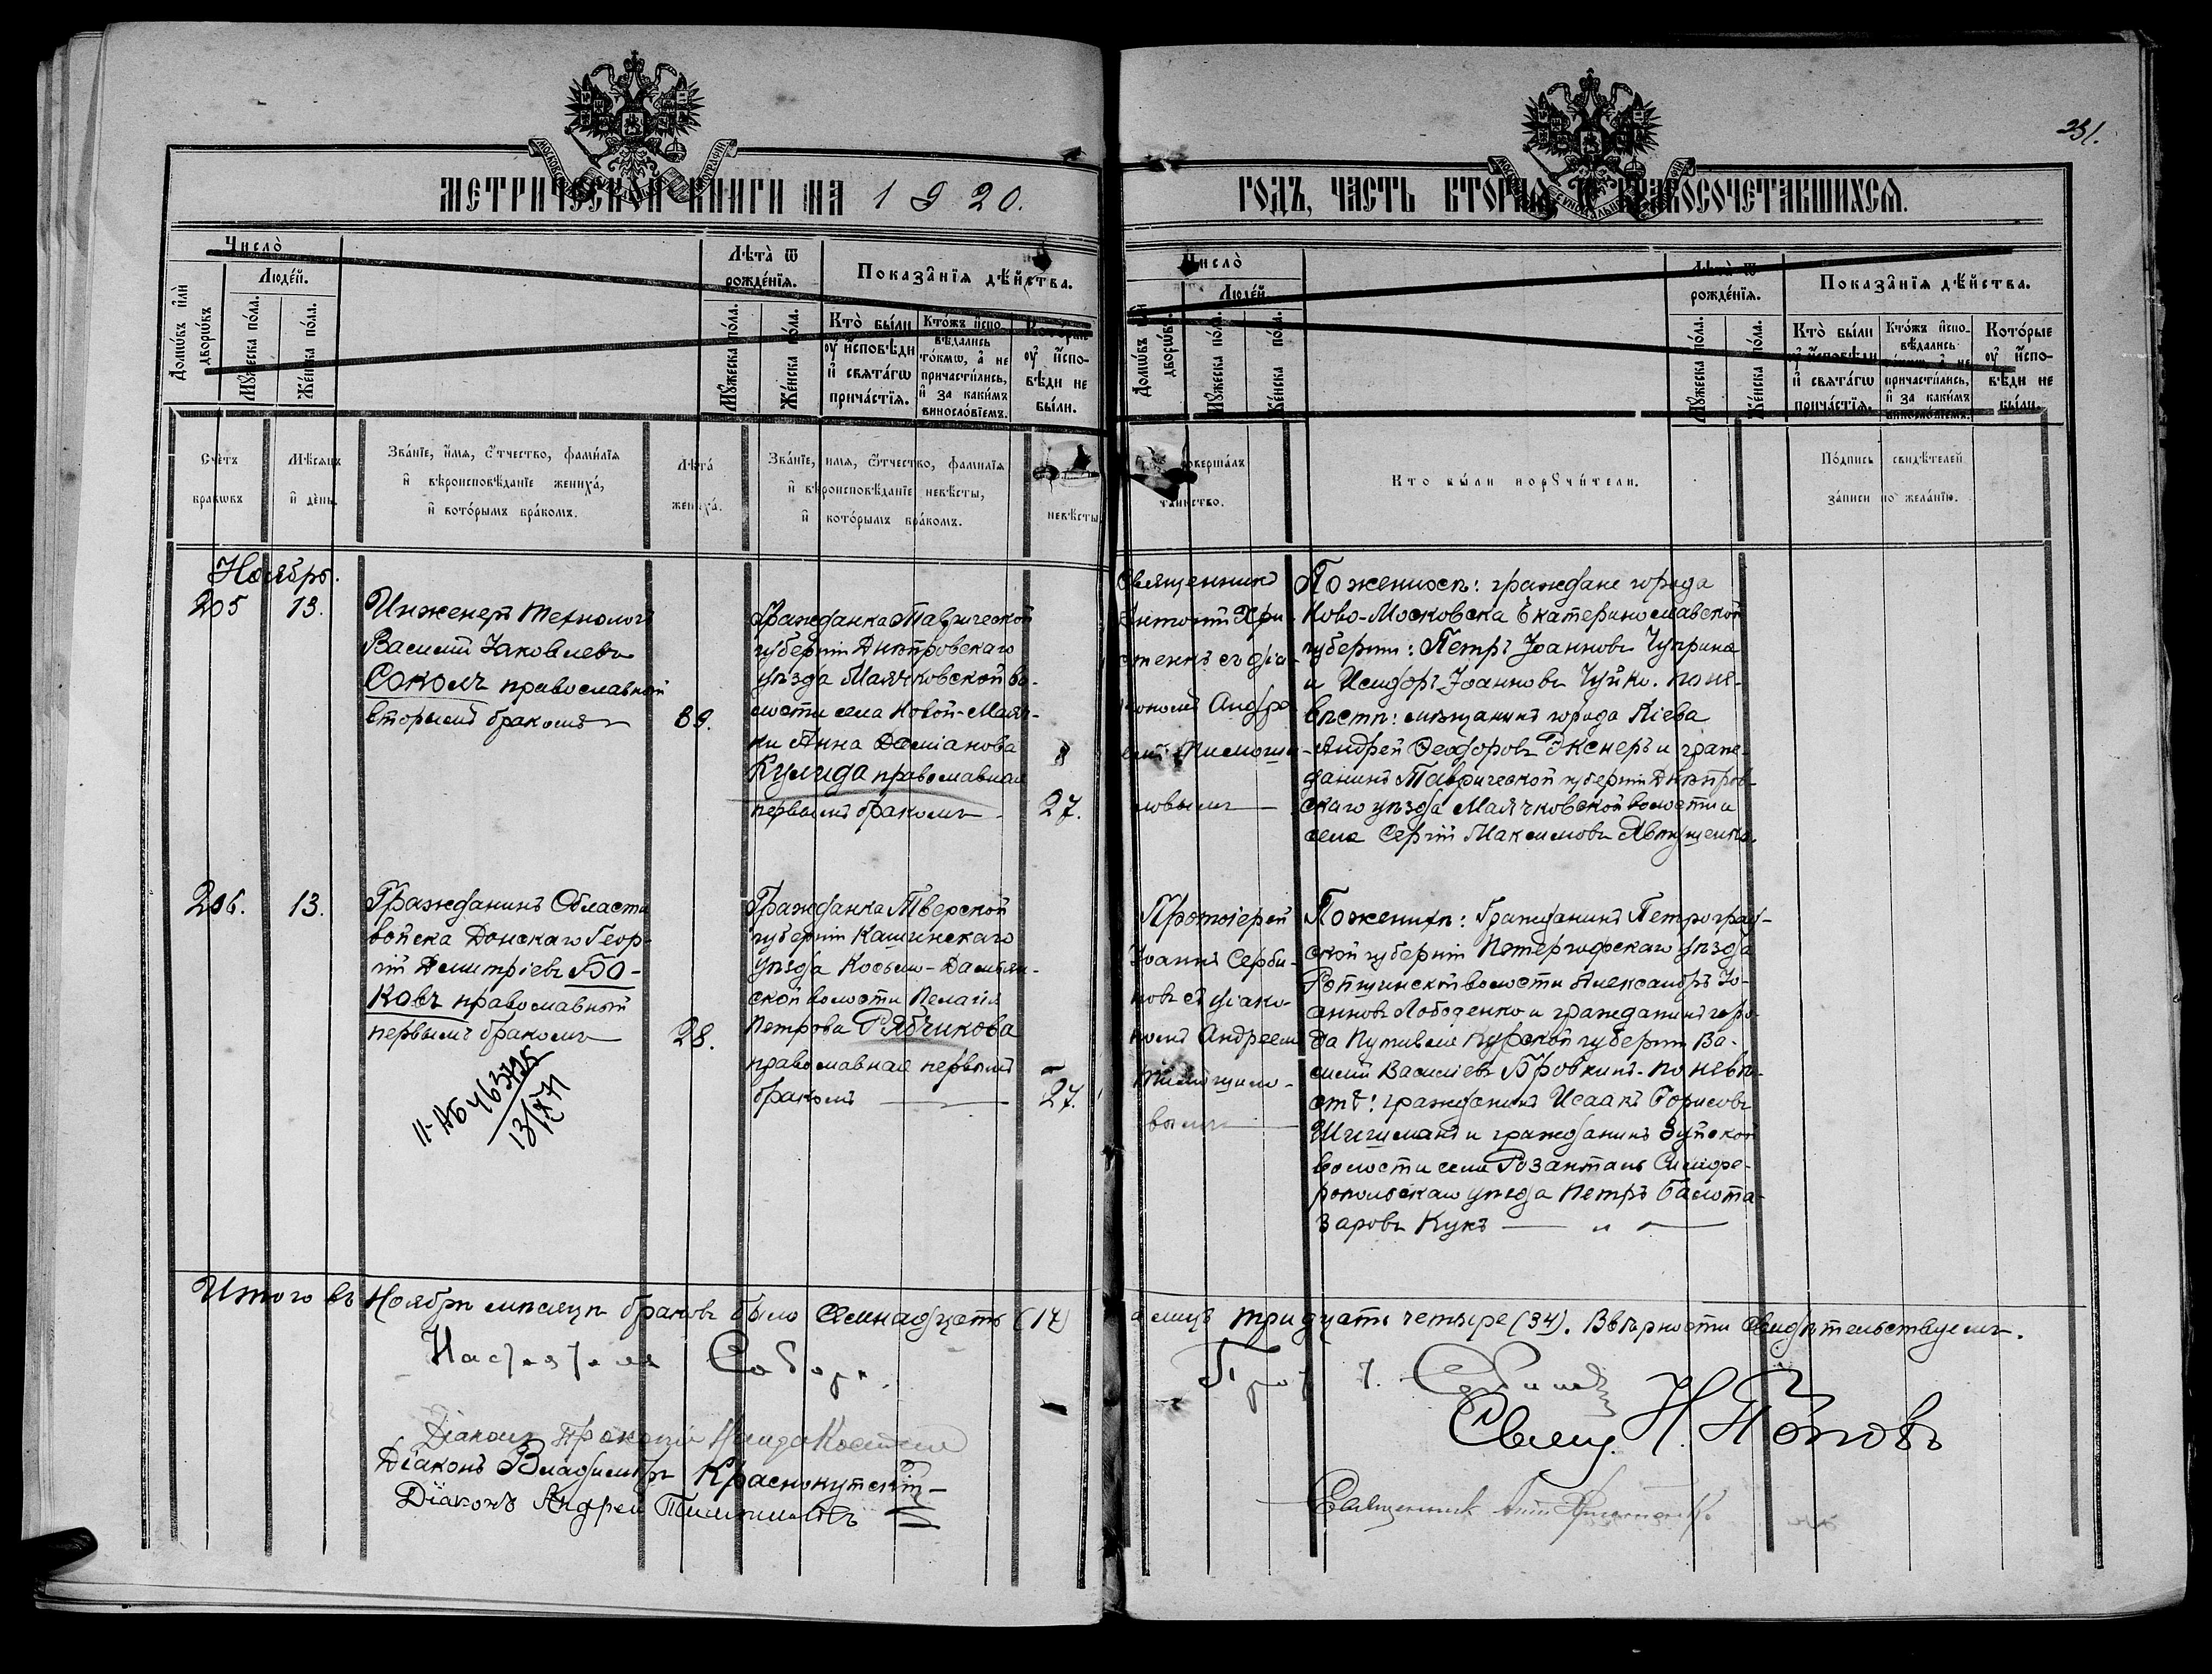 231.
МЕТРИЧЕСКОЙ КНИГИ НА 1920.
ГОДЪ, ЧАСТЬ ВТОРАЯ О БРАКОСОЧЕТАВШИХСЯ.
Число̀
Людей.
Лѣта̀ ѿ
рожде́нїя.
Показа̑нїѧ дѣ́йства.
Кто̀ бы́ли
оу҆ и҆сповѣди
и҆ свята́гѡ
прича́стїя.
Кто́жъ и҆спо-
вѣдались
то́кмѡ, а҆ не
причасти́лись,
и҆ за каки́мъ
винословїемъ.
Кото́рые
оу҆ и҆спо-
вѣди не
бы́ли.
Счетъ
браковъ
Мѣсяцъ
и҆ день.
Зва́нїе, и҆мя, ѻ҆тчество, фами́лїя
и҆ вѣроисповѣданїе жениха́,
и҆ кото́рымъ бра́комъ.
Лѣта́
жениха́.
Зва́нїе, имя, ѻ҆тчество, фамилїя
и҆ вѣроисповѣданїе невѣсты,
и҆ кото́рымъ бра́комъ.
невѣсты
совершалъ
таинство.
Кто были поручи́тели.
По́дпись свидѣтелей
за́писи по жела́нїю.
Ноябрь.
205 13.
Инженеръ Технологъ
Василій Іаковлевъ
Соколъ православный
вторымъ бракомъ
39.
Гражданка Таврической
губерніи Днѣпровскаго
уѣзда Маячковской во-
лости села Новой-Маяч-
ки Анна Даміанова
Кулида православная
первымъ бракомъ
27.
Священникъ
Антоній Хри-
стенкъ съ діа-
кономъ Андре-
емъ Тимоши-
ловымъ
По женихѣ: граждане города
Ново-Московска Екатеринославской
губерніи: Петръ Іоанновъ Чуприна
и Исидоръ Іоанновъ Чуйко. по не-
вѣстѣ: мѣщанинъ города Кіева
Андрей Ѳеодоровъ Экснеръ и граж-
данинъ Таврической губерніи Днѣпров-
скаго уѣзда Маячковской волости и
села Сергій Максимовъ Явтушенко.
206. 13.
Гражданинъ Области
войска Донскаго Геор-
гій Димитріевъ Бо-
ковъ православный
первымъ бракомъ
28.
II-АБ 463795
13/X 71
Гражданка Тверской
губерніи Кашинскаго
уѣзда Косьмо-Даміан-
ской волости Пелагія
Петрова Рябчикова
православная первымъ
бракомъ
27.
Протоіерей
Іоаннъ Серби-
новъ съ діако-
номъ Андреемъ
Тимошило-
вымъ
По женихѣ: Гражданинъ Петроград-
ской губерніи Петергофскаго уѣзда
Ропшинской волости Александръ Іо-
анновъ Лободенко и гражданинъ горо-
да Путивля Курской губерніи Ва-
силій Василіевъ Бровкинъ. по невѣ-
стѣ: гражданинъ Исаакъ Борисовъ
Шигиманъ и гражданинъ Зуйской
волости села Розанталь Симфе-
ропольскаго уѣзда Петръ Балта-
заровъ Кукъ
Итого въ Ноябрѣ мѣсяцѣ браковъ было семнадцать (17)
а лицъ тридцать четыре (34). Въ вѣрности свидѣтельствуемъ.
Настоятель Собора
Прот. І. Сербиновъ
Свящ. Н. Поповъ
Діаконъ Прокопій
Діаконъ Владиміръ Краснокутскій
Діаконъ Андрей Тимошиловъ
Священник Ант. Христенко